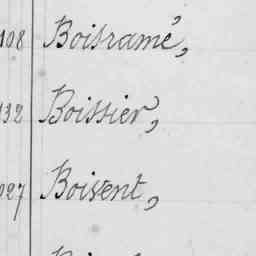 108 Boisramé,
132 Boissier,
027 Boivent,